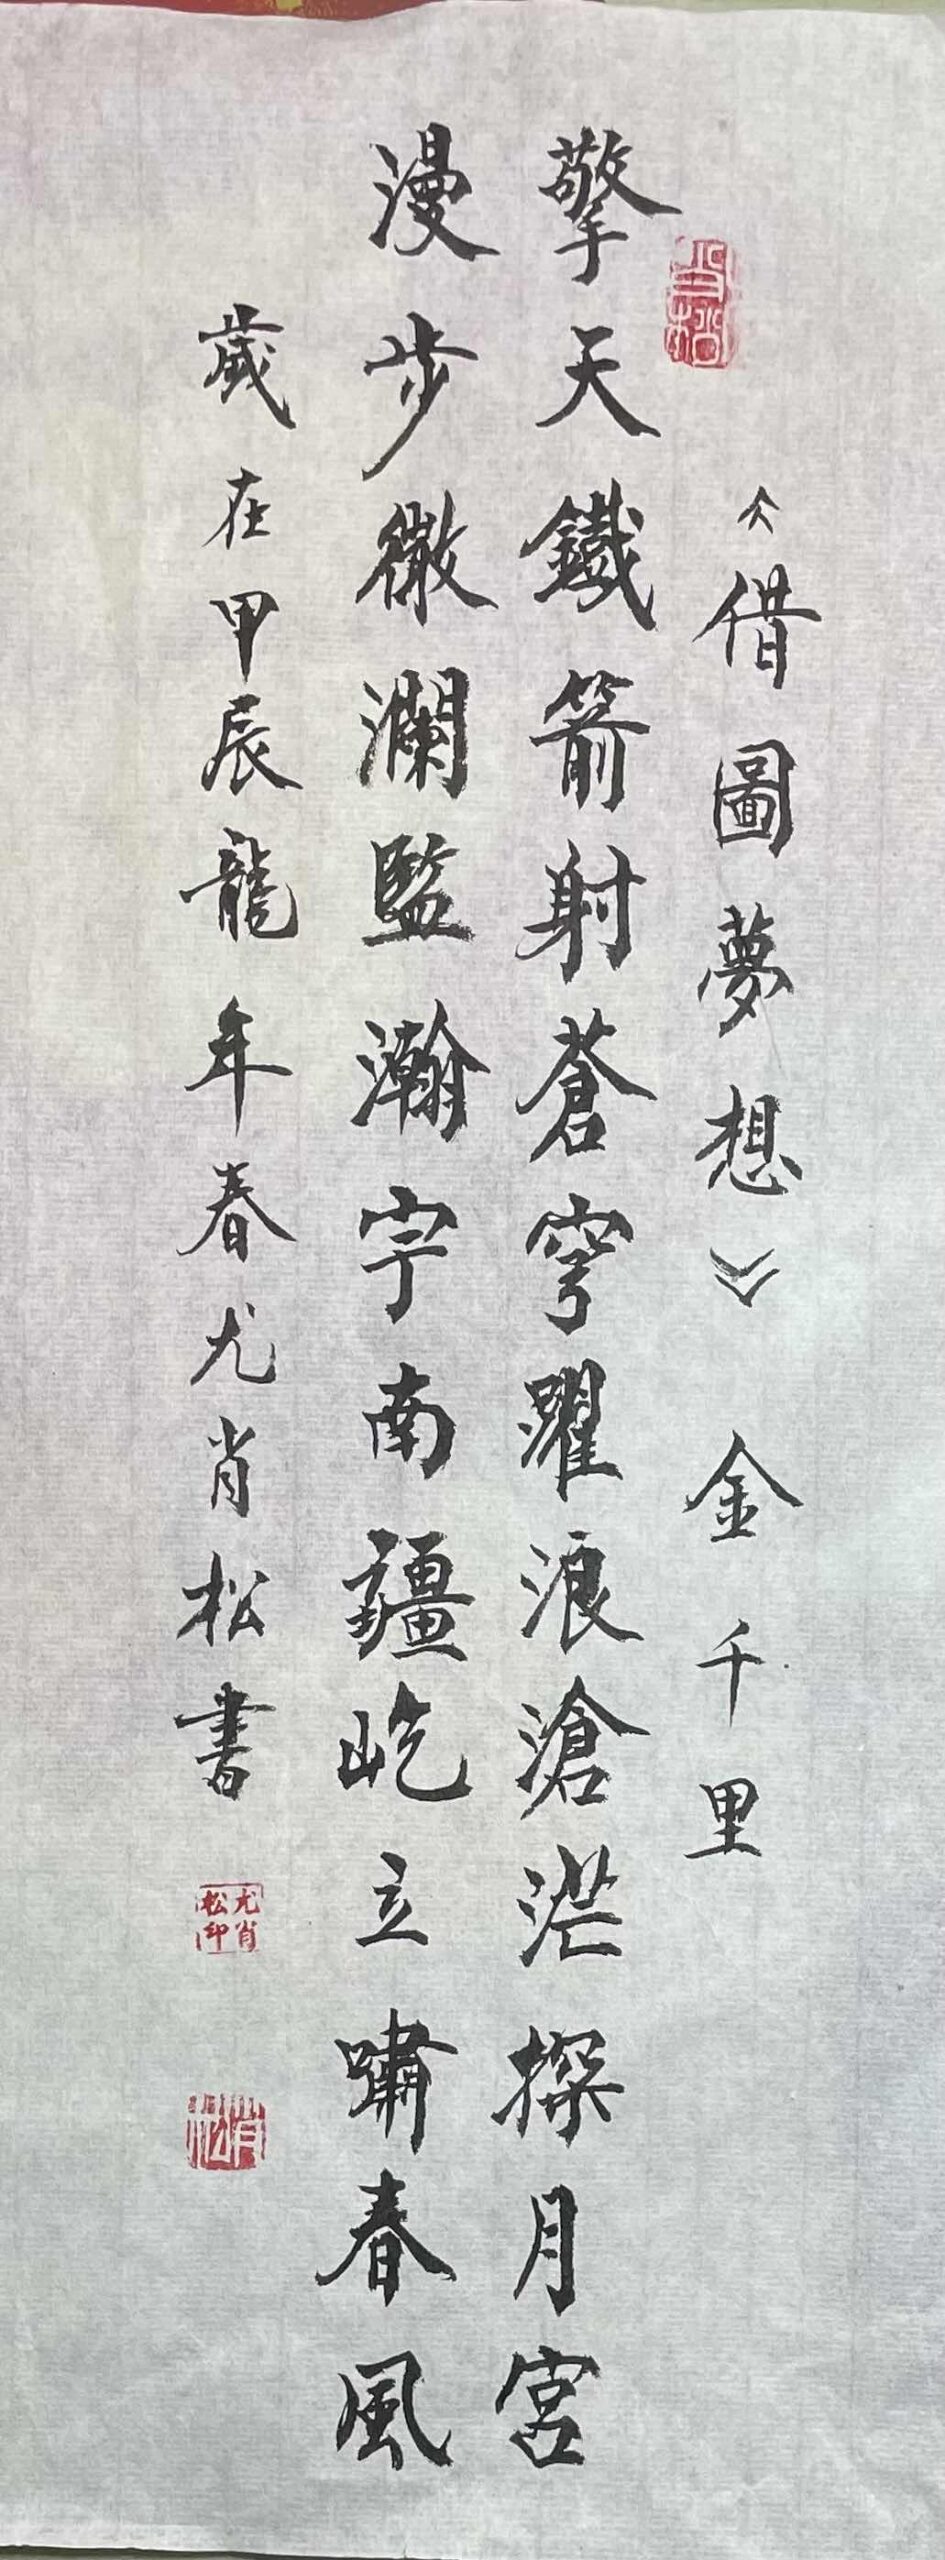 《借圖夢想》金千里
擎天鐵箭射蒼穹躍浪滄茫探月宮
漫步微瀾監瀚宇南疆屹立嘯春風
歲在甲辰龍年春尤肖松書
尤肖松印
肖松